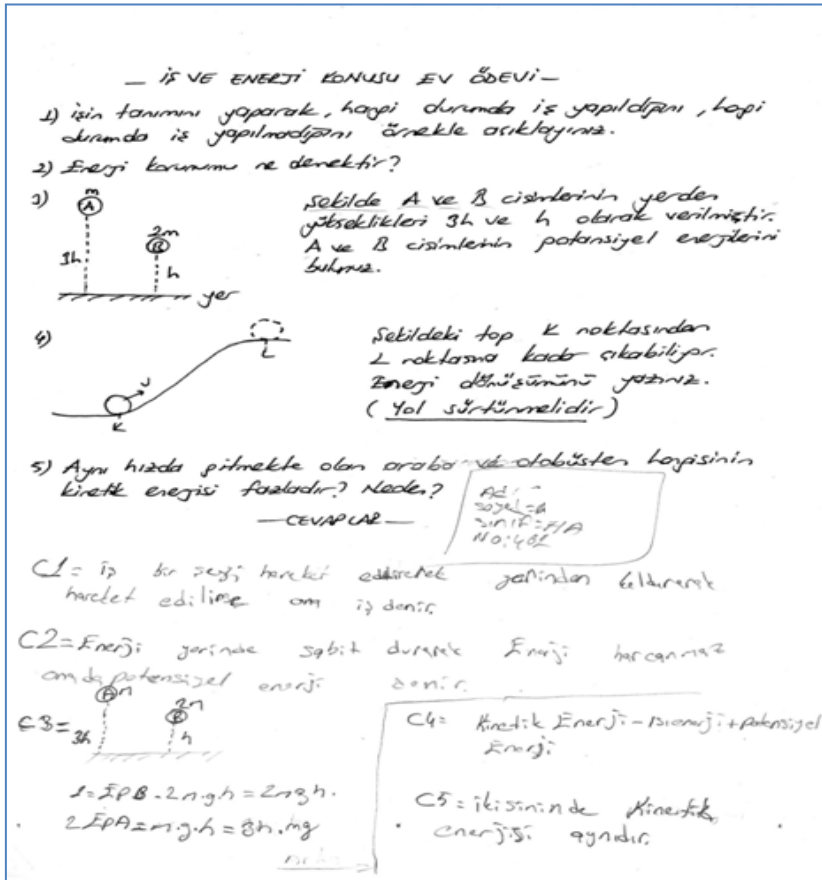 — İŞ VE ENERJİ KONUSU EV ÖDEVİ —
1) İşin tanımını yaparak, hangi durumda iş yapıldığını, hangi
durumda iş yapılmadığını örnekle açıklayınız.
2) Enerji korunumu ne demektir?
3)
m
A
3h
2m
B
h
yer
Şekilde A ve B cisimlerinin yerden
yükseklikleri 3h ve h olarak verilmiştir.
A ve B cisimlerinin potansiyel enerjilerini
bulunuz.
4)
K
L
Şekildeki top K noktasından
L noktasına kadar çıkabiliyor.
Enerji dönüşümünü yazınız.
(Yol sürtünmelidir)
5) Aynı hızda gitmekte olan araba ve otobüsten hangisinin
kinetik enerjisi fazladır? Neden?
— CEVAPLAR —
Adı
sınıf=7/A
C1= iş bir şeyi hareket yerinden
hareket edilirse ona iş denir.
C2= Enerji yerinde sabit durarak Enerji harcanmaz
ona da potansiyel enerji denir.
C3=
A
3h
B
h
1=EPB=2m.g.h=2mgh.
2 EPA=m.g.h=3h.mg
C4= Kinetik Enerji - ısı enerji + potansiyel
Enerji
C5= ikisininde Kinetik
enerjisi aynıdır.